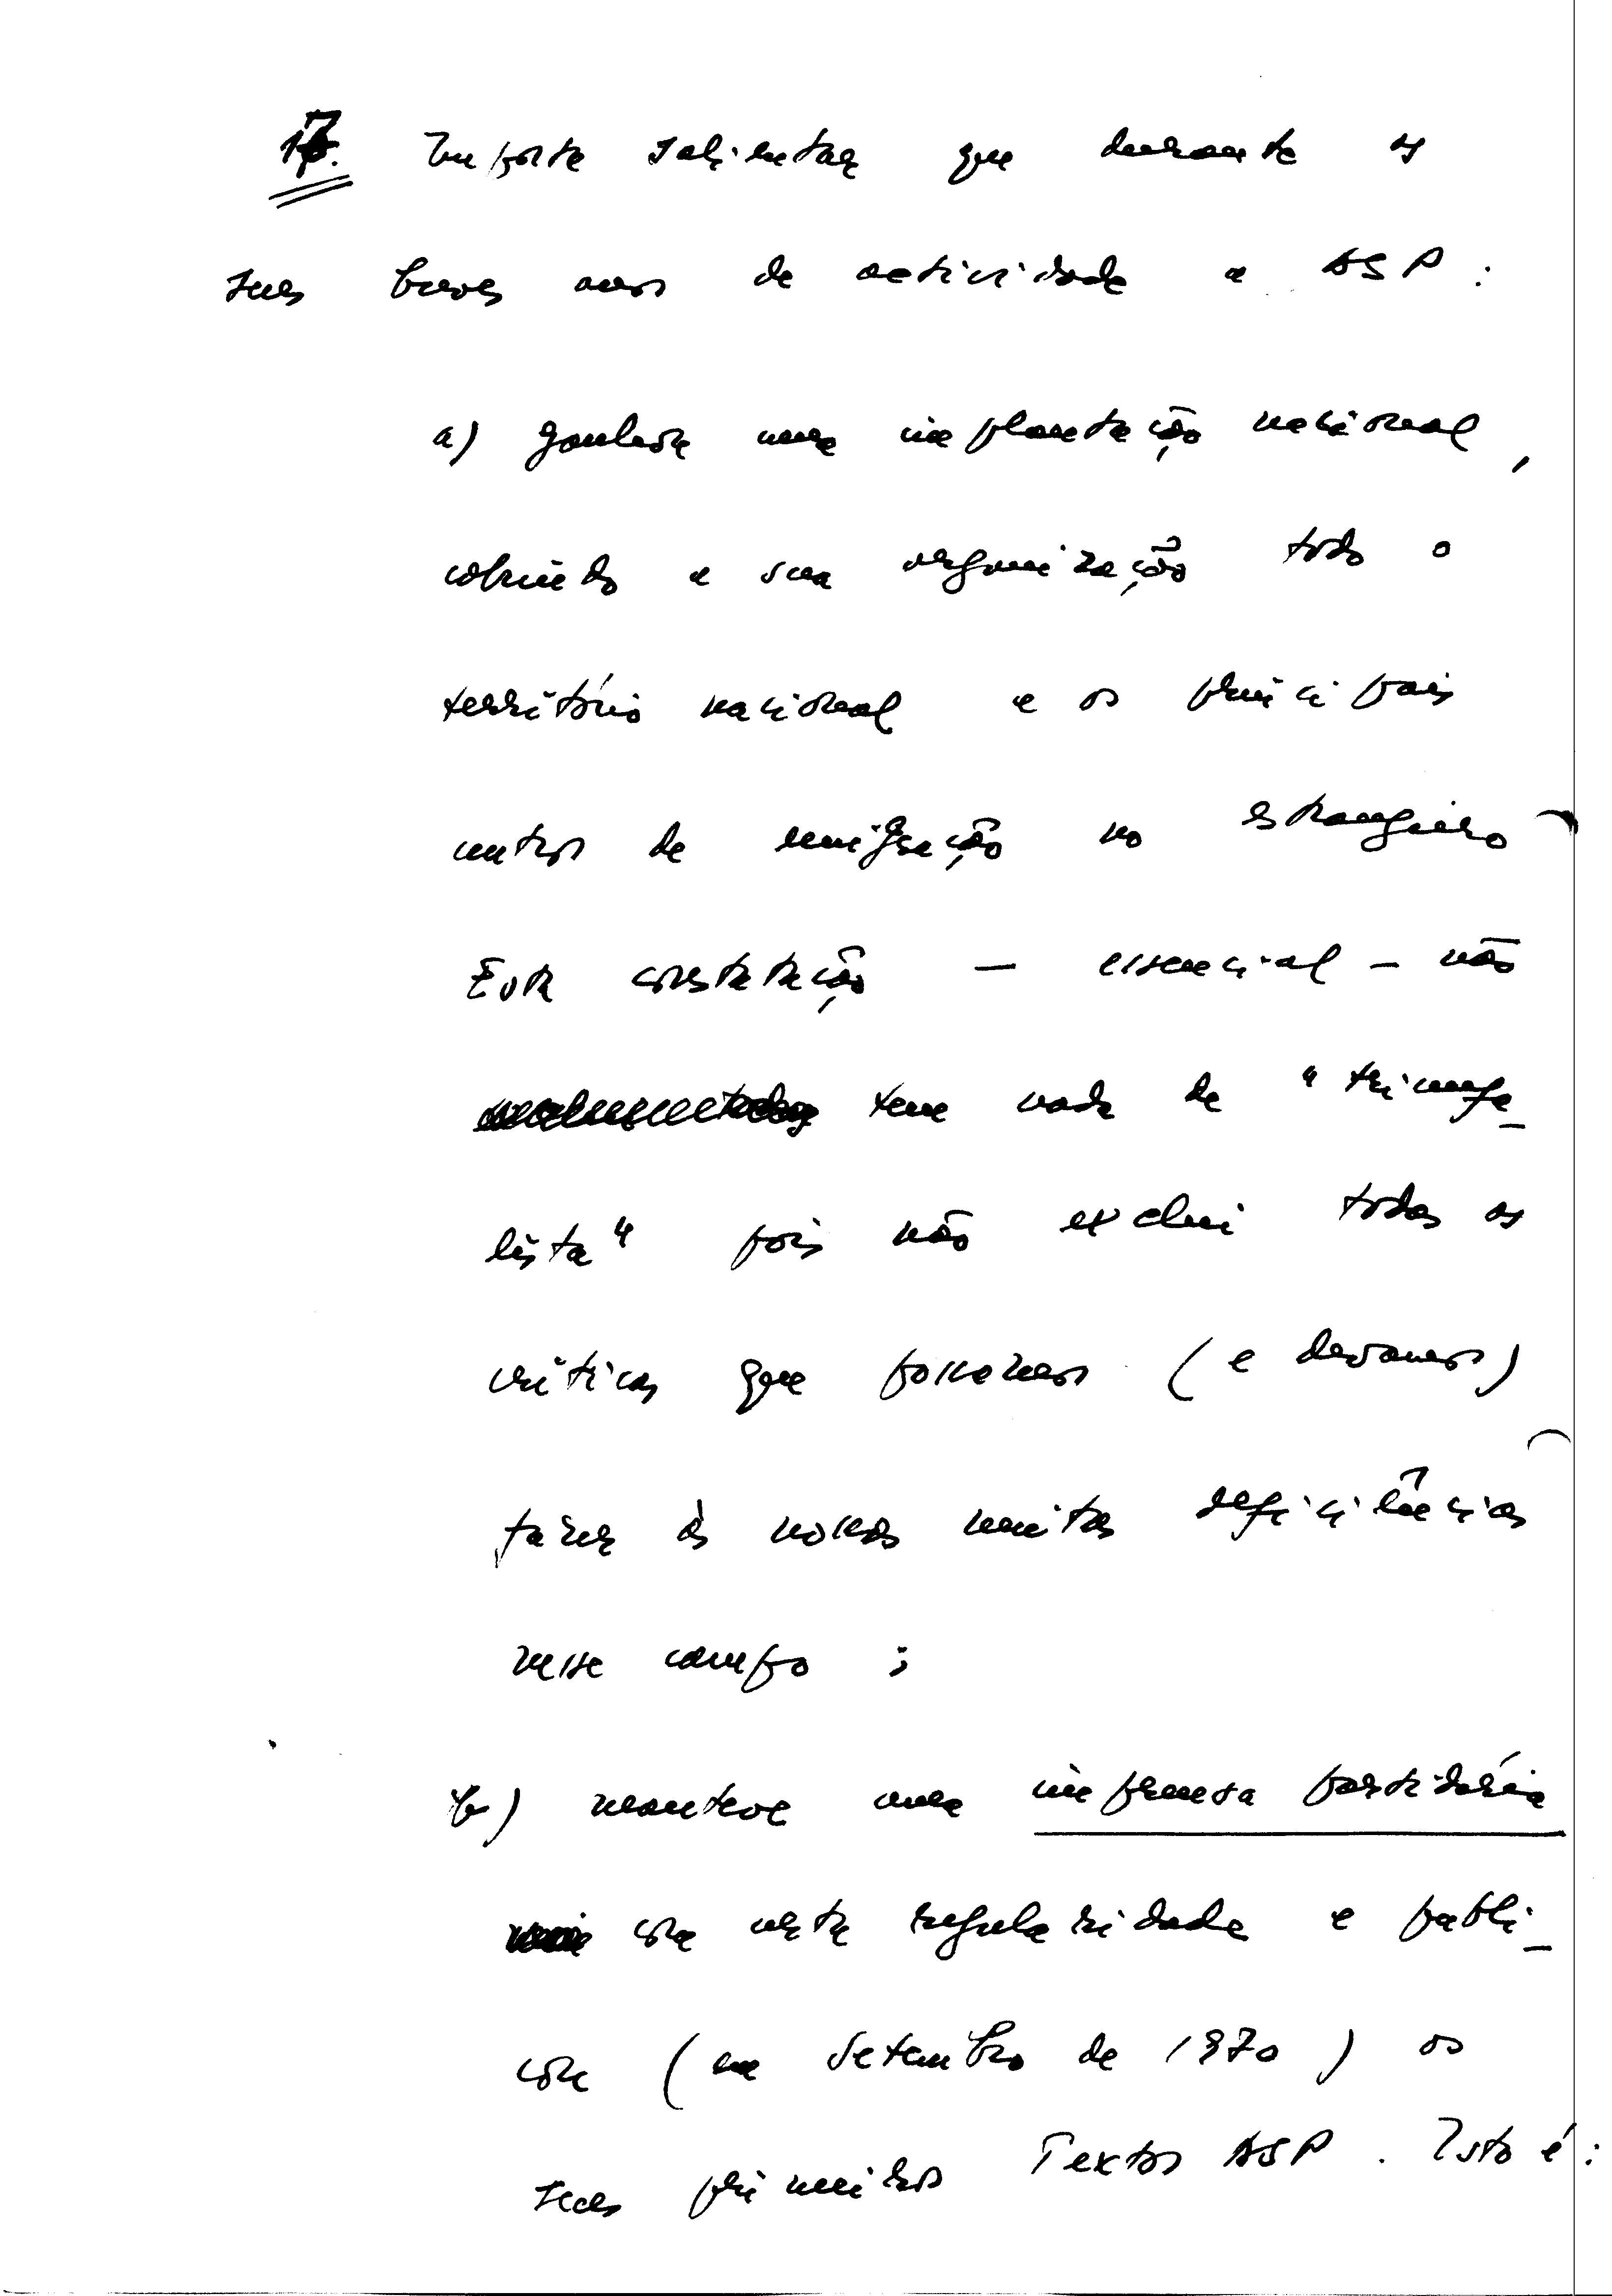 17. Importa salientar que durante os
seus breves anos de actividade a ASP:
a) ganhou uma implantação nacional,
cobrindo a sua organização todo o
território nacional e os principais
centros de emigração no estrangeiro
Esta constatação — essencial — não
tem nada de "triunfa-
lista" pois não exclui todas as
críticas que possamos (e devamos)
fazer às nossas muitas deficiências
nesse campo;
b) manteve uma imprensa partidária
com certa regularidade e publi-
cou (em Setembro de 1970) os
seus primeiros Textos ASP. Isto é: